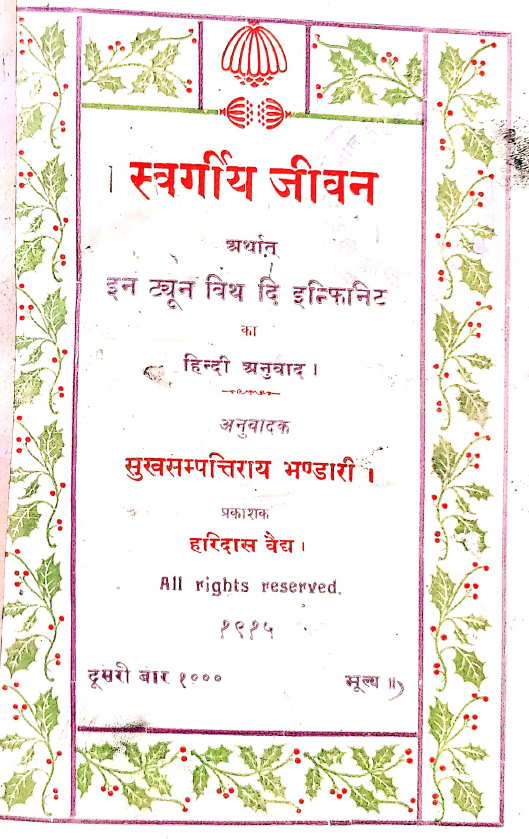 स्वर्गीय जीवन
अर्थात्
इन ट्यून विथ दि इन्फिनिट
का
हिन्दी अनुवाद ।
अनुवादक
सुखसम्पत्तिराय भण्डारी ।
प्रकाशक
हरिदास वैद्य ।
All rights reserved.
१९१५
दूसरी बार १००० मूल्य ॥)